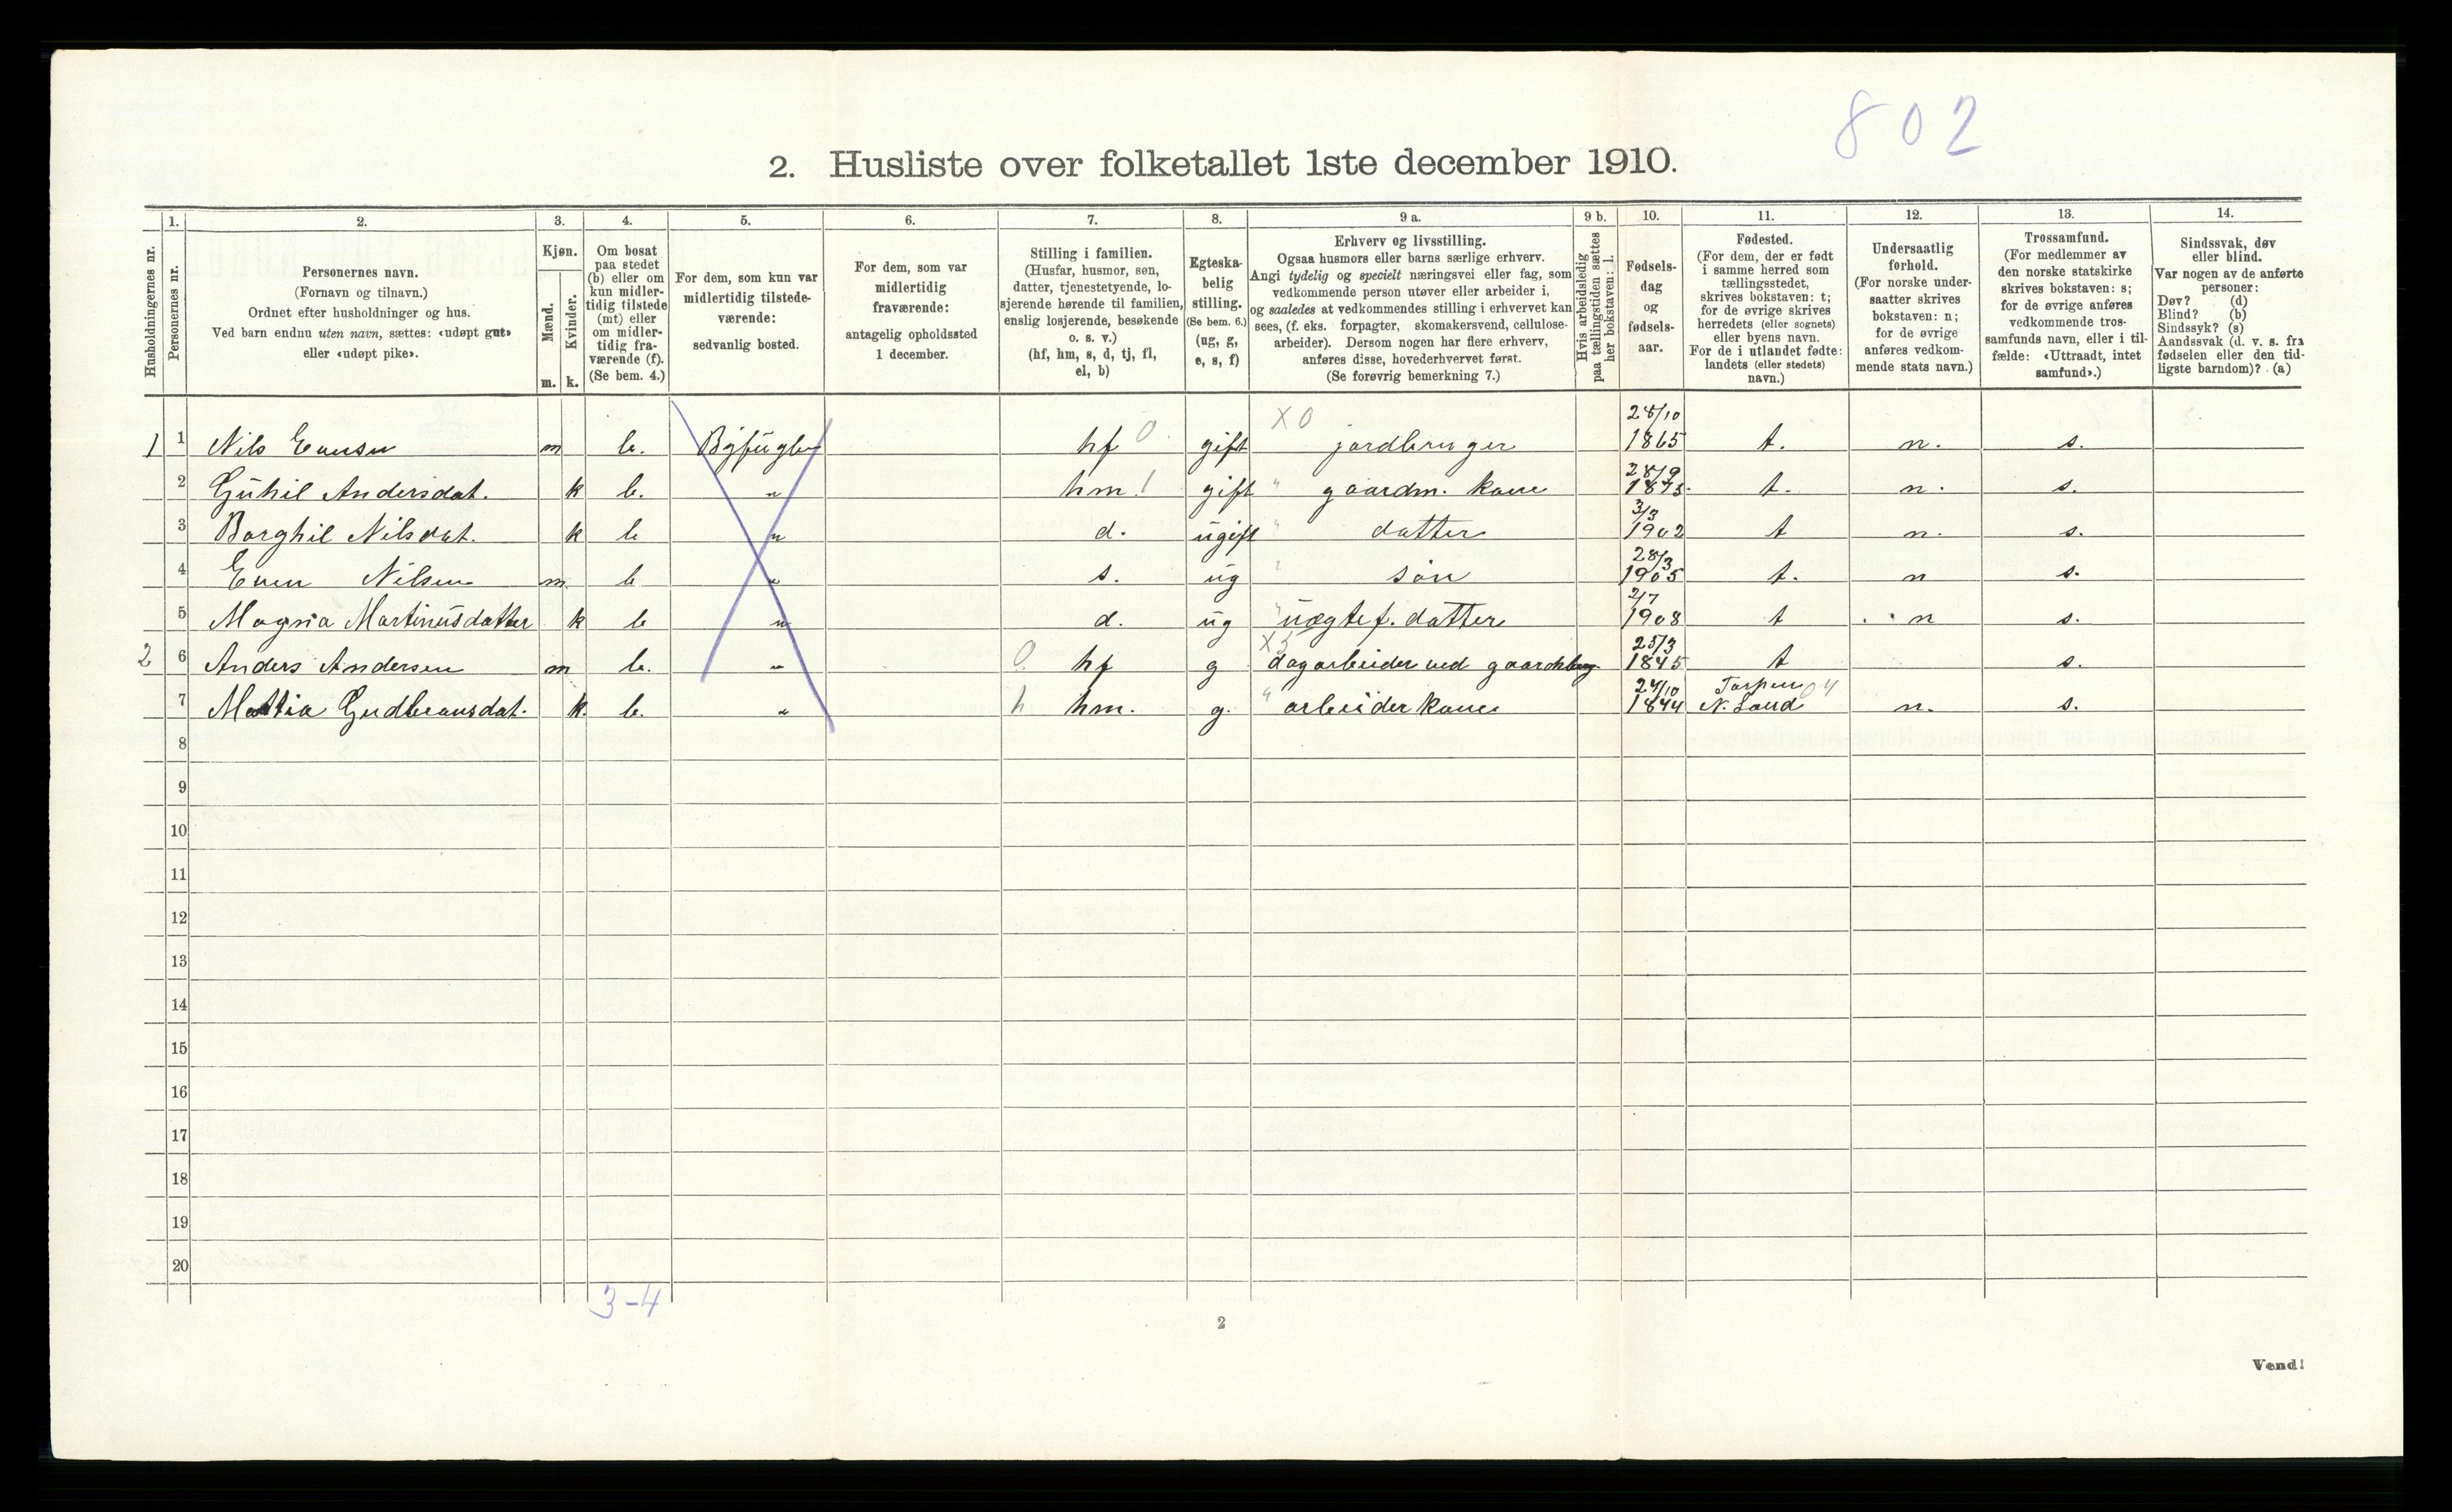 802
2. Husliste over folketallet 1ste december 1910.
1. 2. 3. 4. 5. 6. 7. 8. 9 a. 9 b. 10. 11. 12. 13. 14.
Husholdningernes nr.
Personernes nr.
Personernes navn.
(Fornavn og tilnavn.)
Ordnet efter husholdninger og hus.
Ved barn endnu uten navn, sættes: «udøpt gut»
eller «udøpt pike».
Kjøn.
Mænd.
Kvinder.
m. k.
Om bosat
paa stedet
(b) eller om
kun midler-
tidig tilstede
(mt) eller
om midler-
tidig fra-
værende (f).
(Se bem. 4.)
For dem, som kun var
midlertidig tilstede-
værende:
sedvanlig bosted.
For dem, som var
midlertidig
fraværende:
antagelig opholdssted
1 december.
Stilling i familien.
(Husfar, husmor, søn,
datter, tjenestetyende, lo-
sjerende hørende til familien,
enslig losjerende, besøkende
o. s. v.)
(hf, hm, s, d, tj, fl,
el, b)
Egteska-
belig
stilling.
(Se bem. 6.)
(ug, g,
e, s, f)
Erhverv og livsstilling.
Ogsaa husmors eller barns særlige erhverv.
Angi tydelig og specielt næringsvei eller fag, som
vedkommende person utøver eller arbeider i,
og saaledes at vedkommendes stilling i erhvervet kan
sees, (f. eks. forpagter, skomakersvend, cellulose-
arbeider). Dersom nogen har flere erhverv,
anføres disse, hovederhvervet først.
(Se forøvrig bemerkning 7.)
Hvis arbeidsledig
paa tællingstiden sættes
her bokstaven: l.
Fødsels-
dag
og
fødsels-
aar.
Fødested.
(For dem, der er født
i samme herred som
tællingsstedet,
skrives bokstaven: t;
for de øvrige skrives
herredets (eller sognets)
eller byens navn.
For de i utlandet fødte:
landets (eller stedets)
navn.)
Undersaatlig
forhold.
(For norske under-
saatter skrives
bokstaven: n;
for de øvrige
anføres vedkom-
mende stats navn.)
Trossamfund.
(For medlemmer av
den norske statskirke
skrives bokstaven: s;
for de øvrige anføres
vedkommende tros-
samfunds navn, eller i til-
fælde: «Uttraadt, intet
samfund».)
Sindssvak, døv
eller blind.
Var nogen av de anførte
personer:
Døv? (d)
Blind? (b)
Sindssyk? (s)
Aandssvak (d. v. s. fra
fødselen eller den tid-
ligste barndom)? (a)
X0 28/10
1 1 Nils Evensen m b. Bÿfugle hf 0 gift jordbruger 1865 t. n. s.
28/9
2 Guhil Andersdat. k b. " hm 1 gift " gaardm. kone 1873. t. n. s.
3/3
3 Borghil Nilsdat. k b " d. ugift " datter 1902 t n. s.
28/3
4 Even Nilsen m. b " s. ug " søn 1905 t. n s.
2/7
5 Magna Martinusdatter k b " d. ug " uægtef. datter 1908 t n s.
X3 25/3
2 6 Anders Andersen m b. " 0 hf g dagarbeider ved gaardsbrug 1845 t s.
24/10 Torpen 04
7 Mattia Gudbransdat. k. b. " h hm. g. " arbeider kone 1844 N. Land n. s.
8
9
10
11
12
13
14
15
16
17
18
19
20
3-4
2
Vend!